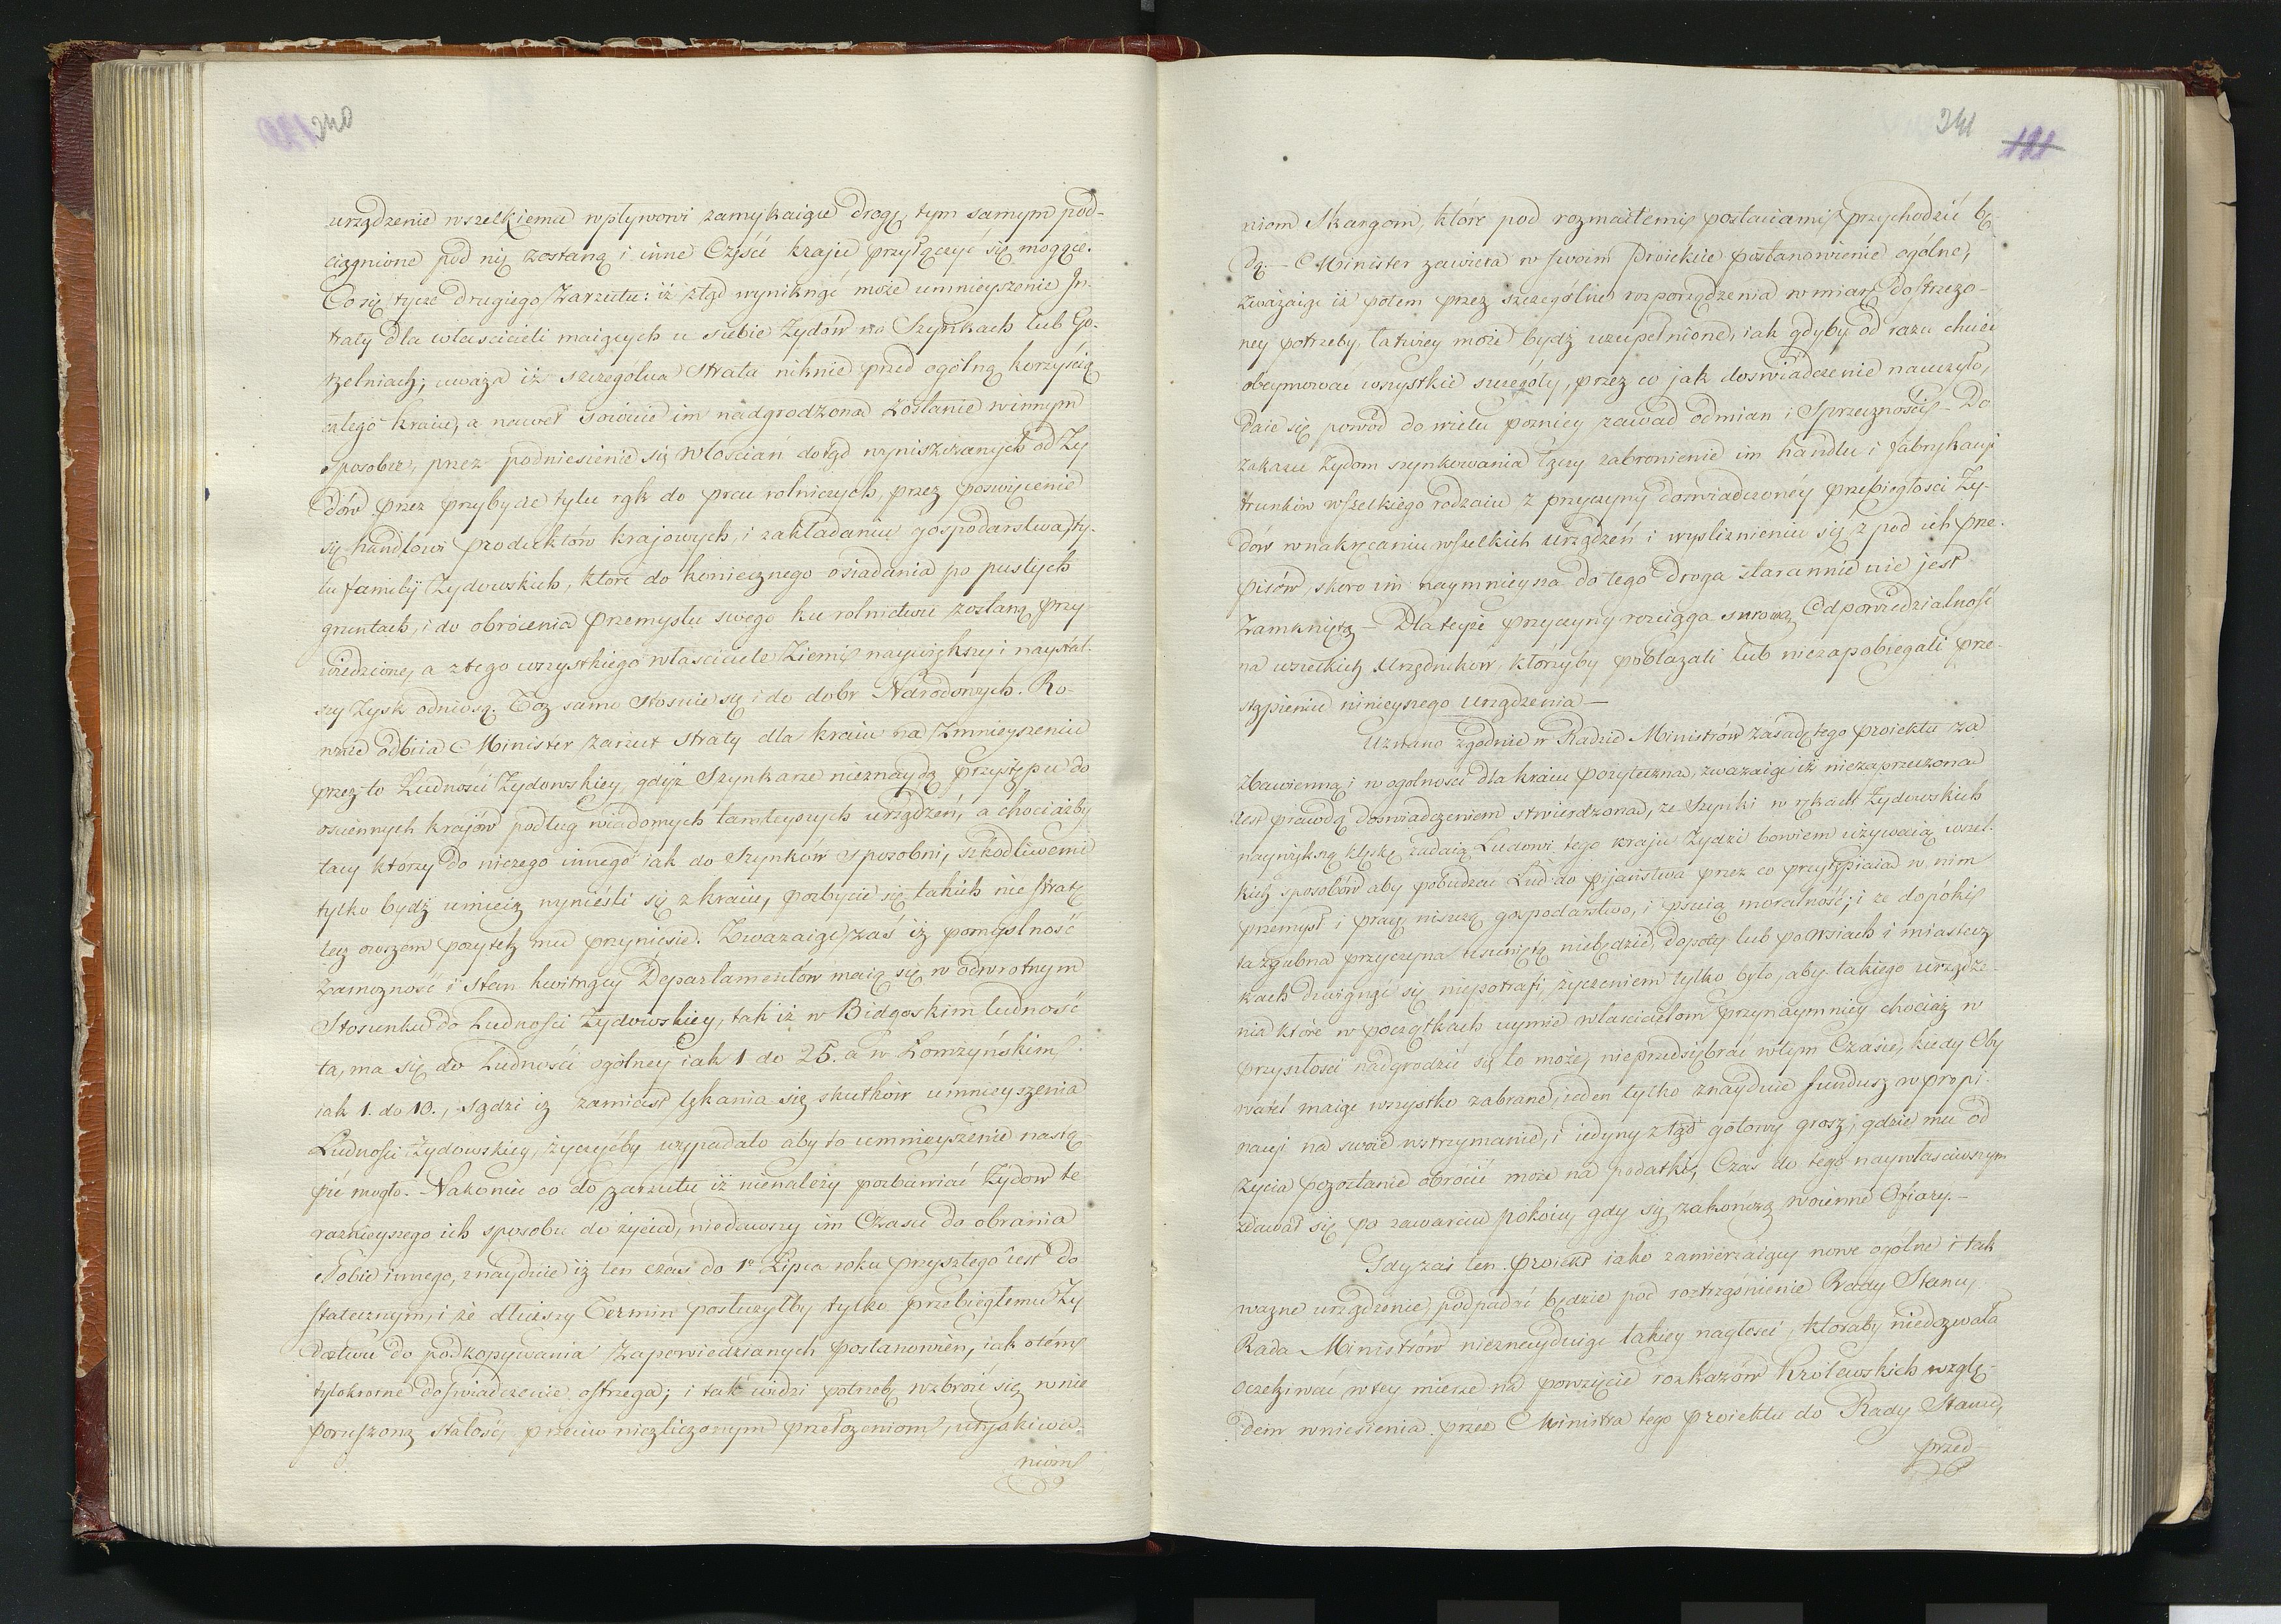 240
urządzenie wszelkiemu wpływowi zamykaiące drogę, tym samym pod-
ciągnione pod nię zostaną i inne Części kraju przyłączyć się mogące.
Co się tycze drugiego Zarzutu: iż ztąd wyniknąć może umnieyszenie In-
traty dla właścicieli maiących u siebie Żydów na Szynkach lub Go-
rzelniach; uważa iż szczególna Strata niknie przed ogólną korzyścią
całego kraiu, a nawet sowicie im nadgrodzona zostanie w innym
sposobie, przez podniesienie się Włościan dotąd wyniszczanych od Ży
dów przez przybycie tylu rąk do prac rolniczych, przez poświęcenie
się handlowi produktów krajowych, i zakładaniu gospodarstwa ty-
lu familij Żydowskich, które do koniecznego osiadania po pustych
gruntach, i do obrócenia przemysłu swego ku rolnictwu zostaną przy
wiedzione, a z tego wszystkiego właściciele Ziemi naywiększy i naystal-
szy Zysk odniosą. Toż samo stosuie się i do dobr Narodowych. Ro-
wnie odbiia Minister zarzut Straty dla kraiu na Zmnieyszeniu
przez to Ludności Żydowskiey, gdyż Szynkarze nieznaydą przystępu do
osciennych krajów podług wiadomych tamteyszych urządzeń, a chociażby
tacy którzy do niczego innego iak do Szynków sposobni, szkodliwemi
tylko bydź umieią wynieśli się z kraiu, pozbycie się takich nie stratę
lecz owszem pożytek mu przyniesie. Zważaiąc zaś iż pomyślność
Zamożność i Stan kwitnący Departamentów maią się w odwrotnym
Stosunku do Ludności Żydowskiey, tak iż w Bidgoskim ludność
ta, ma się do Ludności ogólney iak 1 do 25. a w Łomżyńskim
iak 1. do 10., sądzi iż zamiast lękania się skutków umnieyszenia
Ludności Żydowskiey, życzyćby wypadało aby to umnieyszenie nastą
pić mogło. Nakoniec co do zarzutu iż nienależy pozbawiać Żydow te
raznieyszego ich sposobu do życia, niedawszy im Czasu do obrania
sobie innego, znayduie iż ten czas do 1° Lipca roku przyszłego iest do
statecznym, i że dłuższy Termin posłużyłby tylko przebiegłemu Ży
dostwu do podkopywania Zapowiedzianych postanowień, iak o tém
tylokrotne doświadczenie ostrzega; i tak widzi potrzebę wzbroić się w nie
poruszoną stałość, przeciw niezliczonym przełożeniom, utyskiwa-
niom
241
121
niom Skargom, które pod rozmaitemi postaciami przychodzić bę
dą. - Minister zawiera w swoim Proiekcie postanowienie ogólne,
zważaiąc iż potem przez szczególne rozporządzenia w miarę dostrzeżo-
ney potrzeby, łatwiey może bydź uzupełnione, iak gdyby od razu chcieć
obeymować wszystkie szczegóły, przez co jak doświadczenie nauczyło,
daie się powód do wielu pozniey zawad odmian i Sprzeczności - Do
zakazu Żydom szynkowania łączy zabronienie im handlu i fabrykacyi
trunków wszelkiego rodzaiu z przyczyny doświadczoney przebiegłości Ży-
dów w nakręcaniu wszelkich urządzeń i wyslizniieniu się z pod ich prze-
pisów, skoro im naymnieysza do tego droga starannie nie jest
Zamknięta - Dla teyże przyczyny rozciąga surową Odpowiedzialność
na wszelkich Urzędników, którzyby pobłażali lub niezapobiegali prze-
stąpieniu ninieyszego urządzenia -
Uznano zgodnie w Radzie Ministrów zasadę tego proiektu za
zbawienną i w ogolnosci dla kraiu pożyteczna, zważaiąc iż niezaprzeczona
iest prawdą doswiadczeniem stwierdzona, że Szynki w rękach Żydowskich
naywiększą klęskę zadaią Ludowi tego kraju Żydzi bowiem używaią wszel-
kich sposobów aby pobudzać Lud do pijaństwa przez co przytępiaią w nim
przemysł i pracę, niszczą gospodarstwo, i psuią moralność; i że dopóki
ta zgubna przyczyna usuniętą niebędzie, dopóty lub po Wsiach i miastecz
kach dzwignąć się niepotrafi, życzeniem tylko było, aby takiego urządze-
nia które w początkach uymie właścicielom przynaymniey chociaż w
przyszłości nadgrodzić się to może, nieprzedsiębrać w tym Czasie, kiedy Oby
watel maiąc wszystko zabrane, ieden tylko znayduie fundusz w propi-
nacyi na swoie wstrzymanie, i iedyny ztąd gotowy grosz, gdzie mu od
Życia pozostanie obrócić może na podatki, Czas do tego naywłaściwszym
zdawał się po zawarciu pokoiu, gdy się zakończą woienne Ofiary. -
Gdy zaś ten proiekt iako zamierzaiący nowe ogólne i tak
ważne urządzenie, podpadać będzie pod roztrząśnienie Rady Stanu,
Rada Ministrów nieznayduiąc takiey nagłości, któraby niedozwała
oczekiwać w tey mierze na powzięcie rozkazów Królewskich wzglę-
dem wniesienia przez Ministra tego proiektu do Rady Stanu,
przed-